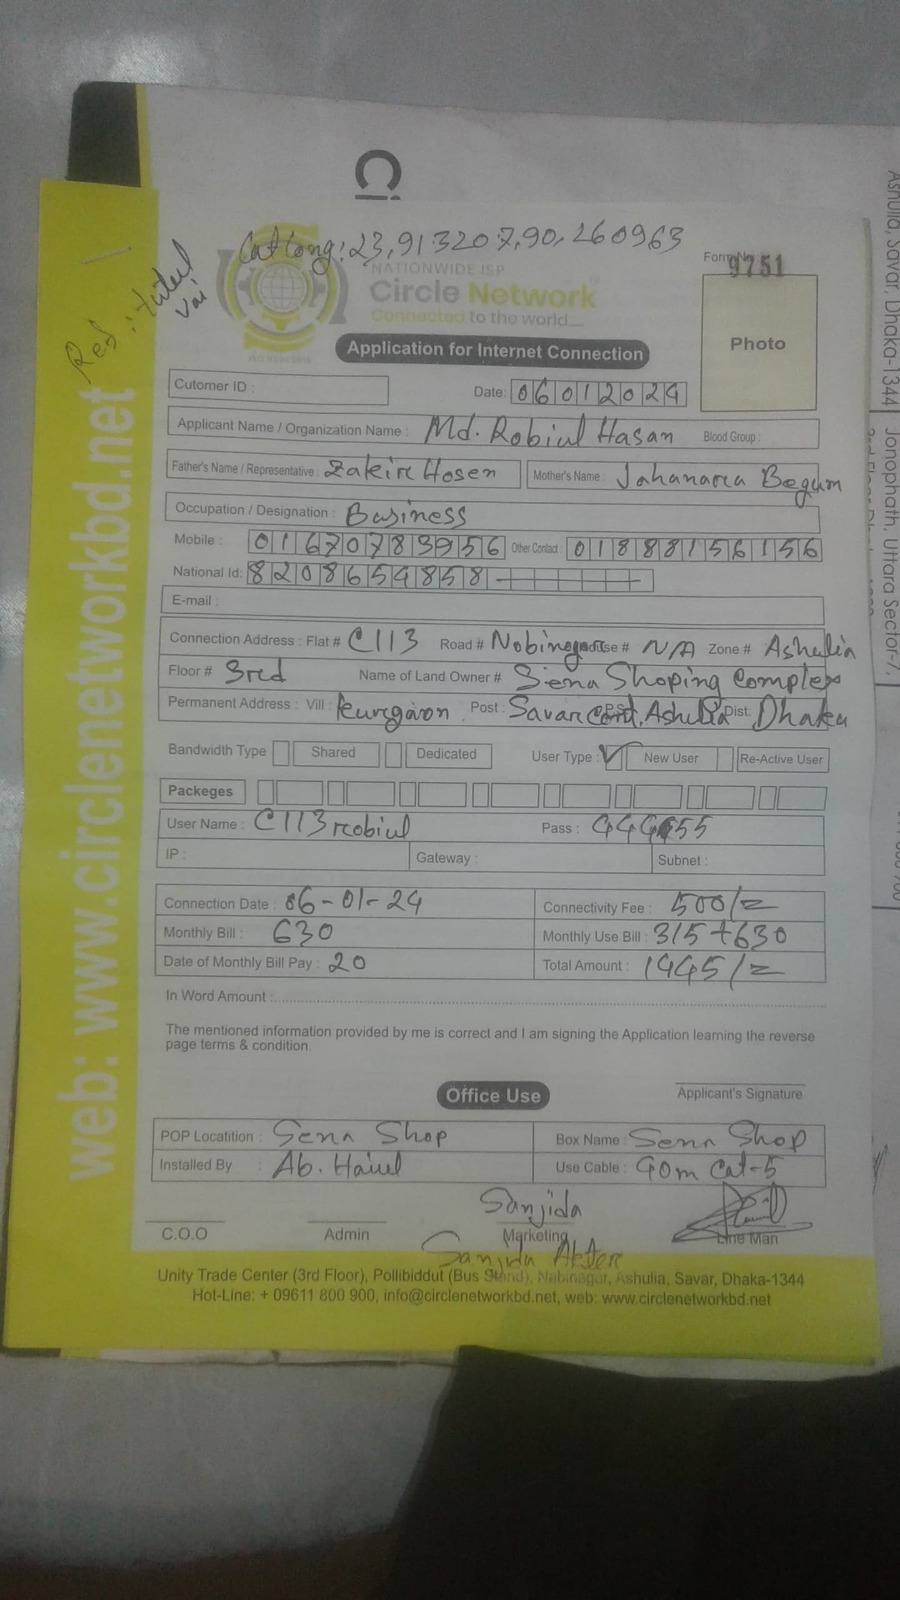 Ci
Cat Long: 23,913207,90,260963
Ref: tutul vai
Form No 9751
NATIONWIDE ISP
Circle Network
Connected to the world...
Photo
Application for Internet Connection
Cutomer ID :
Date: 06012024
Applicant Name / Organization Name : Md. Robiul Hasan Blood Group :
Father's Name / Representative : Zakir Hosen Mother's Name : Jahanara Begum
Occupation / Designation : Business
Mobile : 01670783956 Other Contact : 01888156156
National Id: 8208654858
E-mail :
Connection Address : Flat # C113 Road # Nobinogar # N/A Zone # Ashulia
Floor # 3rd Name of Land Owner # Sena Shoping Complex
Permanent Address : Vill : Post : Savar cant, Ashulia Dist: Dhaka
Bandwidth Type Shared Dedicated User Type : ✓ New User Re-Active User
Packeges
User Name : C113robiul Pass :
IP : Gateway : Subnet :
Connection Date : 06-01-24 Connectivity Fee : 500/=
Monthly Bill : 630 Monthly Use Bill : 315+630
Date of Monthly Bill Pay : 20 Total Amount : 1445/=
In Word Amount :
The mentioned information provided by me is correct and I am signing the Application learning the reverse
page terms & condition.
Applicant's Signature
Office Use
POP Locatition : Sena Shop Box Name : Sena Shop
Installed By : Ab. Use Cable : 90m Cat-5
Sanjida
C.O.O Admin Marketing Line Man
Sanjida Akter
Unity Trade Center (3rd Floor), Pollibiddut (Bus Stand), Nabinagar, Ashulia, Savar, Dhaka-1344
Hot-Line: + 09611 800 900, info@circlenetworkbd.net, web: www.circlenetworkbd.net
web: www.circlenetworkbd.net
Ashulia, Savar, Dhaka-1344
Jonophath, Uttara Sector-7,